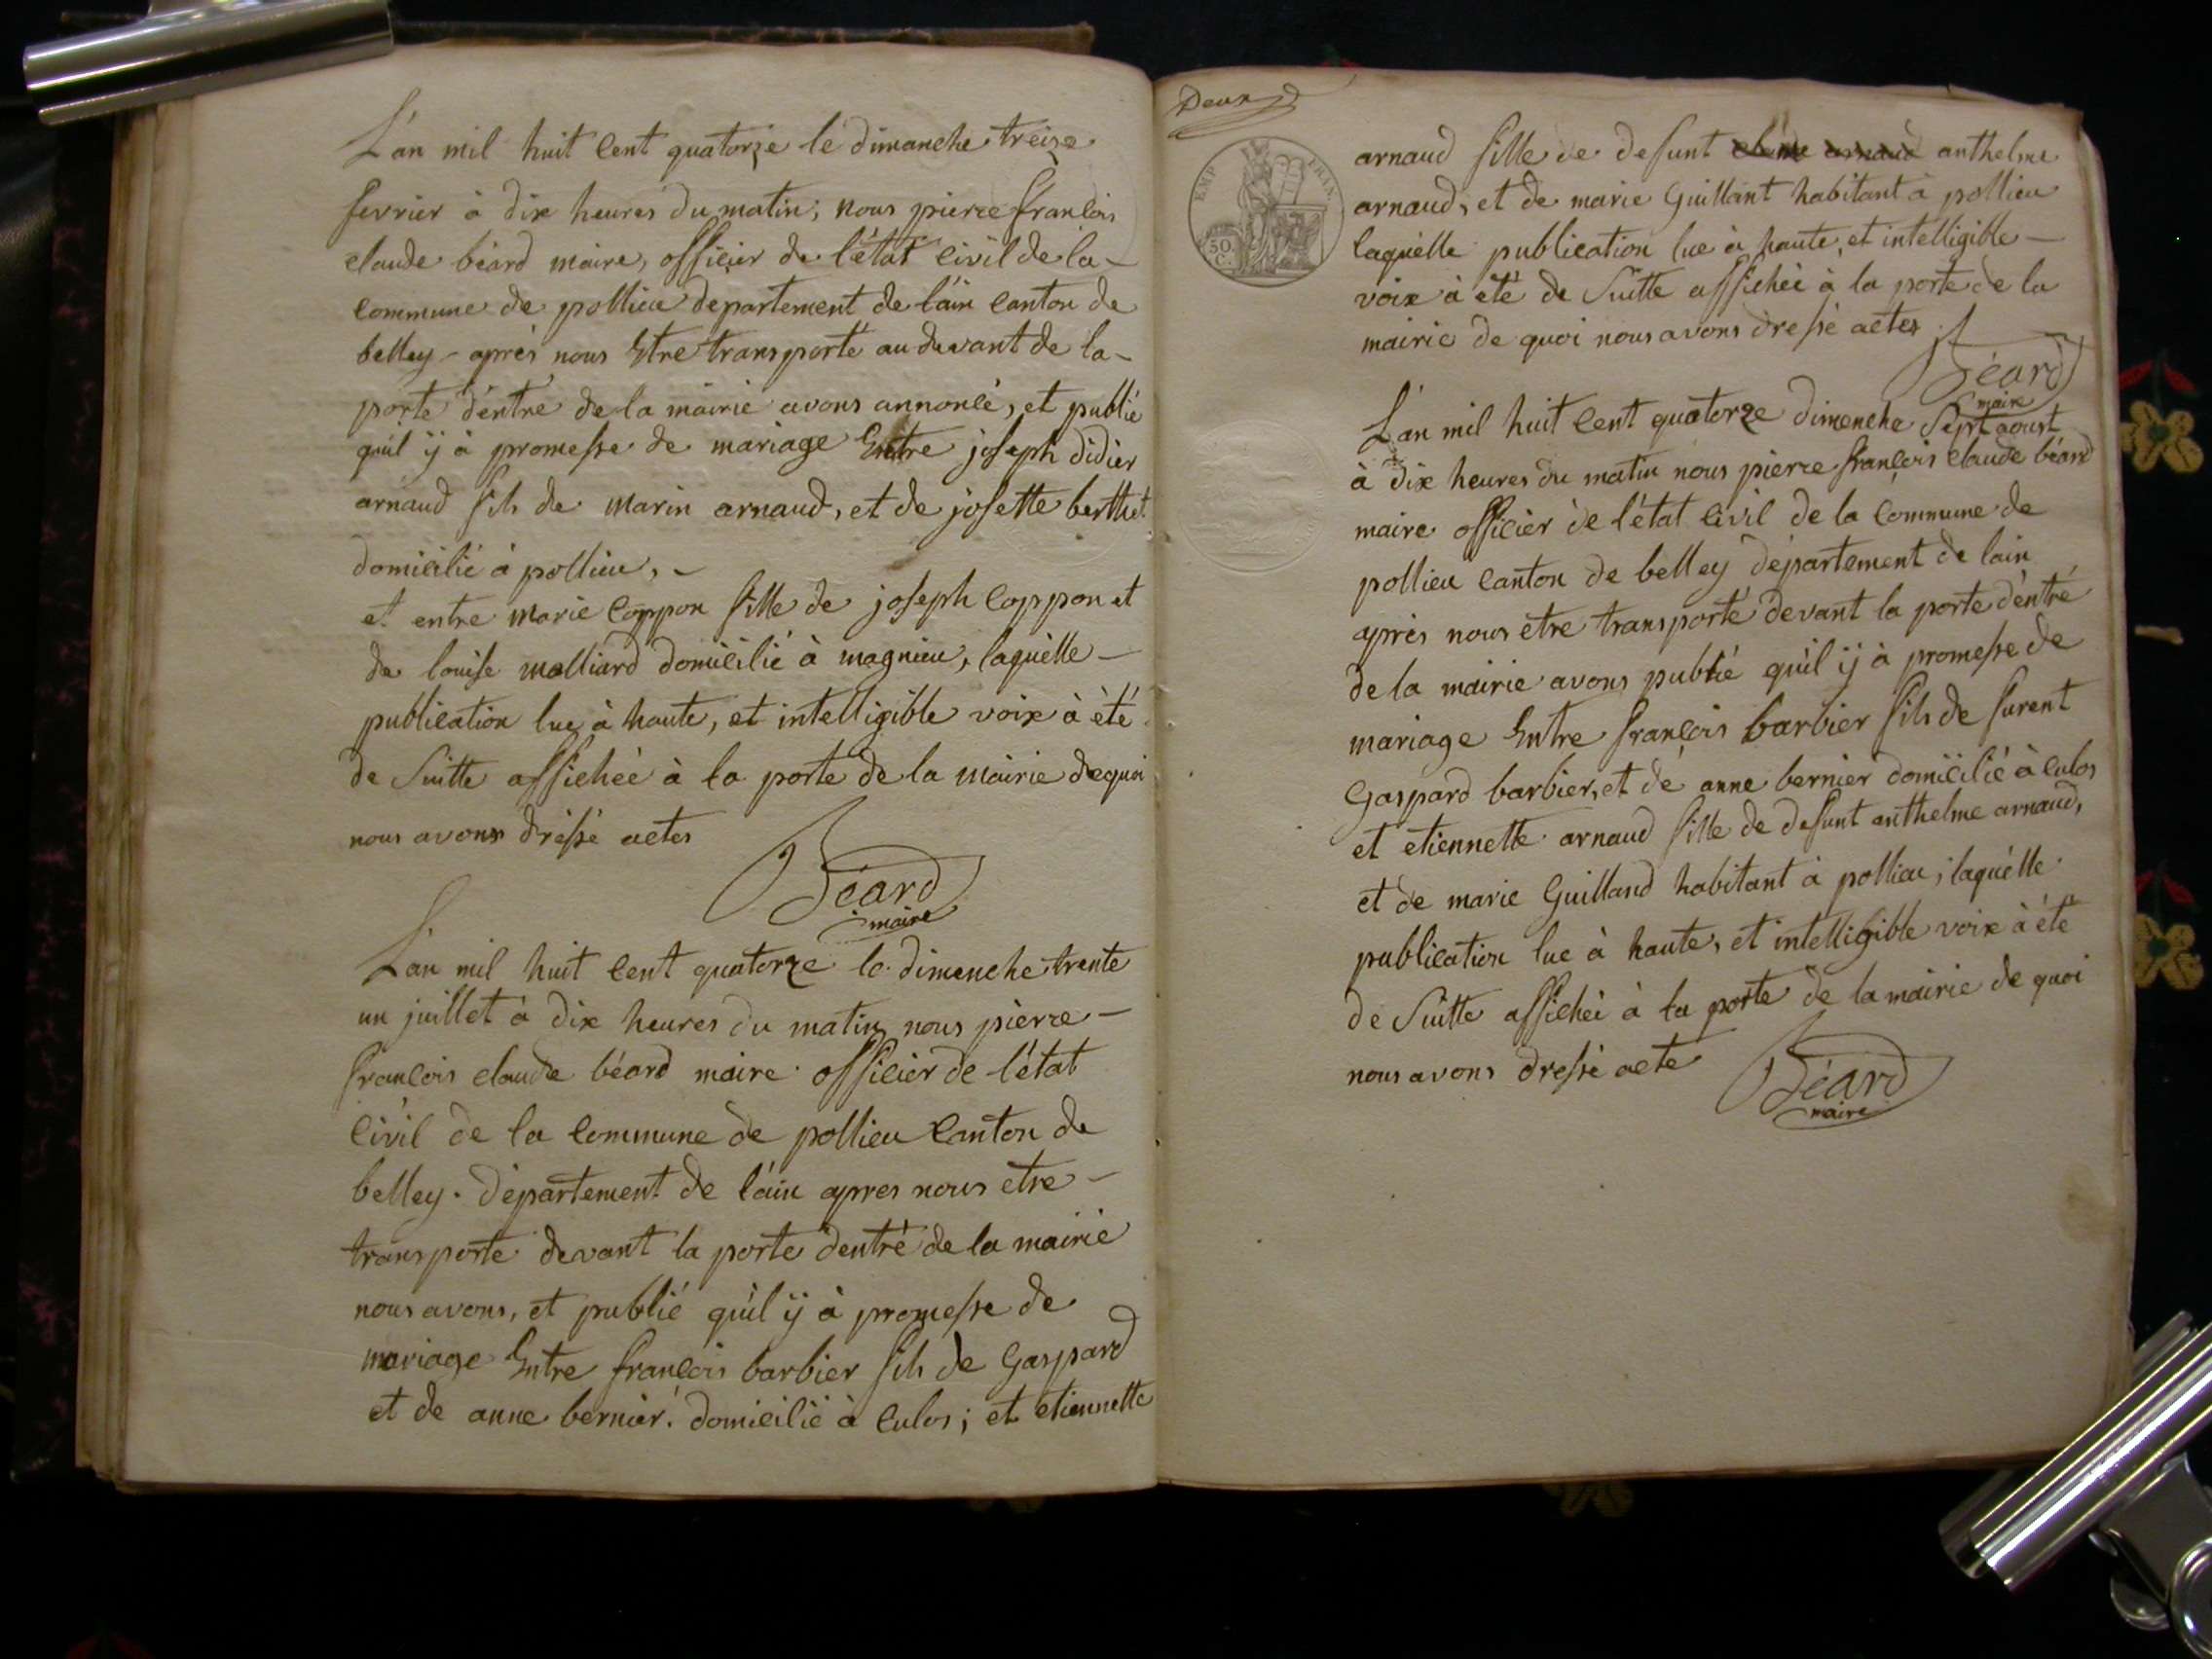 L'an mil huit cent quatorze le dimanche treize
fevrier à dix heures du matin, nous pierre françois
claude béard maire, officier de l'état civil de la
commune de pollieu departement de l'ain canton de
belley - après nous Etre transporté au devant de la
porte d'entré de la mairie avons annoncé, et publié
qu'il ÿ à promesse de mariage Entre joseph didier
arnaud fils de marin arnaud, et de josette berthet
domicilié à pollieu, -
et entre marie coppon fille de joseph coppon et
de louise molliard domicilié à magnieu, laquèlle -
publication lue à haute, et intelligible voix à èté
de suitte affichée à la porte de la mairie de quoi
nous avons drèssé actes
Béard
maire
L'an mil huit cent quatorze le dimenche trente
un juillet à dix heures du matin nous pierre -
françois claude béard maire officier de l'état
civil de la commune de pollieu canton de
belley. département de l'ain apres nous etre -
transporté devant la porte dentré de la mairie
nous avons, et publié qu'il ÿ à promesse de
mariage Entre françois barbier fils de Gaspard
et de anne bernier. domicilié à culos; et etiennette
Deux
EMP. FRAN.
50
C.
arnaud fille de defunt anthelme
arnaud, et de marie Guillant habitant à pollieu
laquèlle publication lue à haute, et intelligible -
voix à eté de suitte affichée à la porte de la
mairie de quoi nous avons dressé actes
Béard
maire
L'an mil huit cent quatorze dimenche sept aoust
à dix heures du matin nous pierre françois claude béard
maire officièr de l'état civil de la commune de
pollieu canton de belley département de lain
après nous etre transporté devant la porte d'éntré
de la mairie avons publié qu'il ÿ à promesse de
mariage Entre françois barbier fils de furent
Gaspard barbier, et de anne bernier domicilié à culos
et etiennette arnaud fille de defunt anthelme arnaud,
et de marie Guilland habitant à pollieu, laquèlle
publication lue à haute, et intelligible voix à été
de suitte affichéé à la porte de la mairie de quoi
nous avons dressé acte
Béard
maire